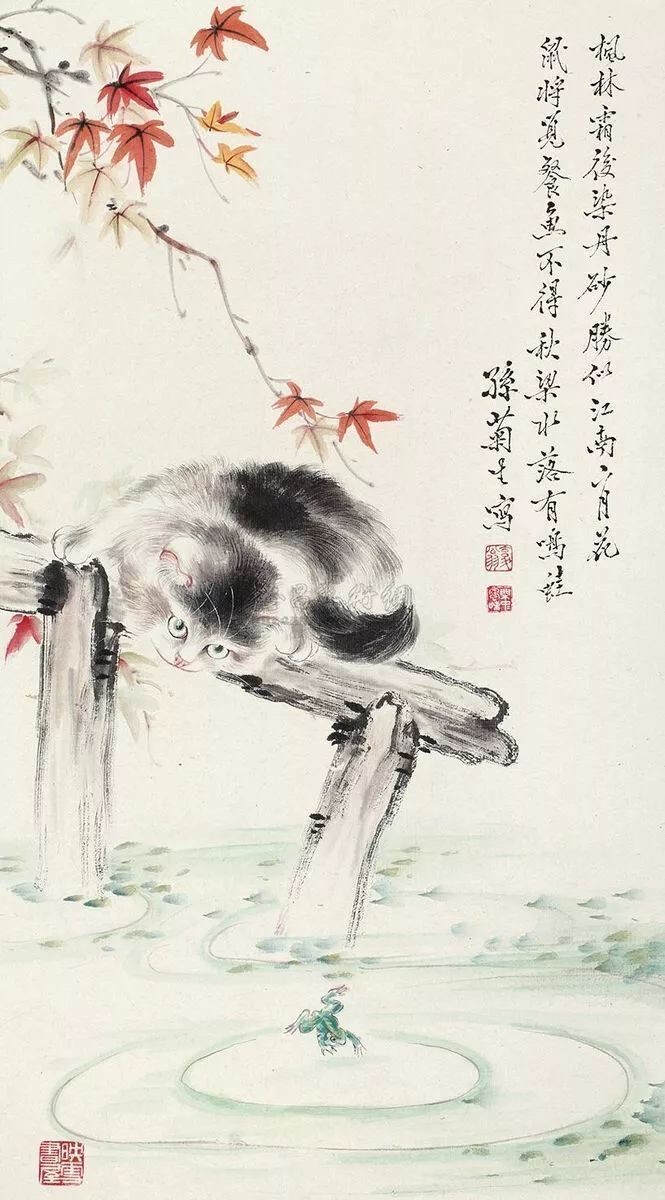 楓林霜後染丹砂勝似江南二月花
將覓餐魚不得秋梁水落有鳴蛙
孫菊生寫
映雪書屋